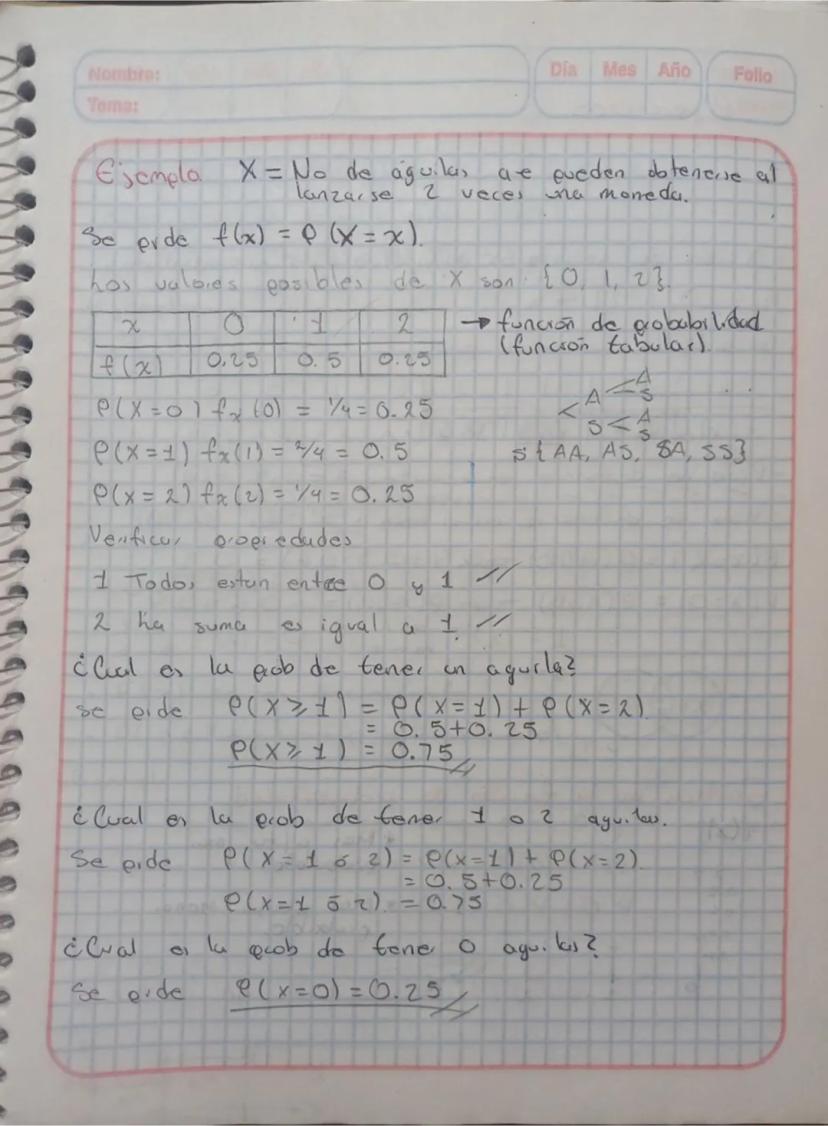 Nombre:
Tema:
Día Mes Año Folio
Ejemplo X = No de águilas que pueden obtenerse al
lanzarse 2 veces una moneda.
Se pide f(x) = P(X = x).
Los valores posibles de X son {0, 1, 2}.
x 0 1 2 → función de probabilidad
(función tabular).
f(x) 0.25 0.5 0.25
P(X=0) fx(0) = 1/4 = 0.25
< A < A S
S < A S
P(X=1) fx(1) = 2/4 = 0.5
s{AA, AS, SA, SS}
P(X = 2) fx(2) = 1/4 = 0.25
Verificar propiedades
1 Todos estan entre 0 y 1 //
2 La suma es igual a 1. //
¿Cual es la prob de tener un aguila?
Se pide P(X ≥ 1) = P(X=1) + P(X=2)
= 0.5+0.25
P(X ≥ 1) = 0.75 //
¿Cual es la prob de tener 1 o 2 aguilas.
Se pide P(X = 1 ó 2) = P(x=1) + P(X=2)
= 0.5+0.25
P(X=1 ó 2) = 0.75
¿Cual es la prob de tener 0 aguilas?
Se pide P(X=0) = 0.25 //